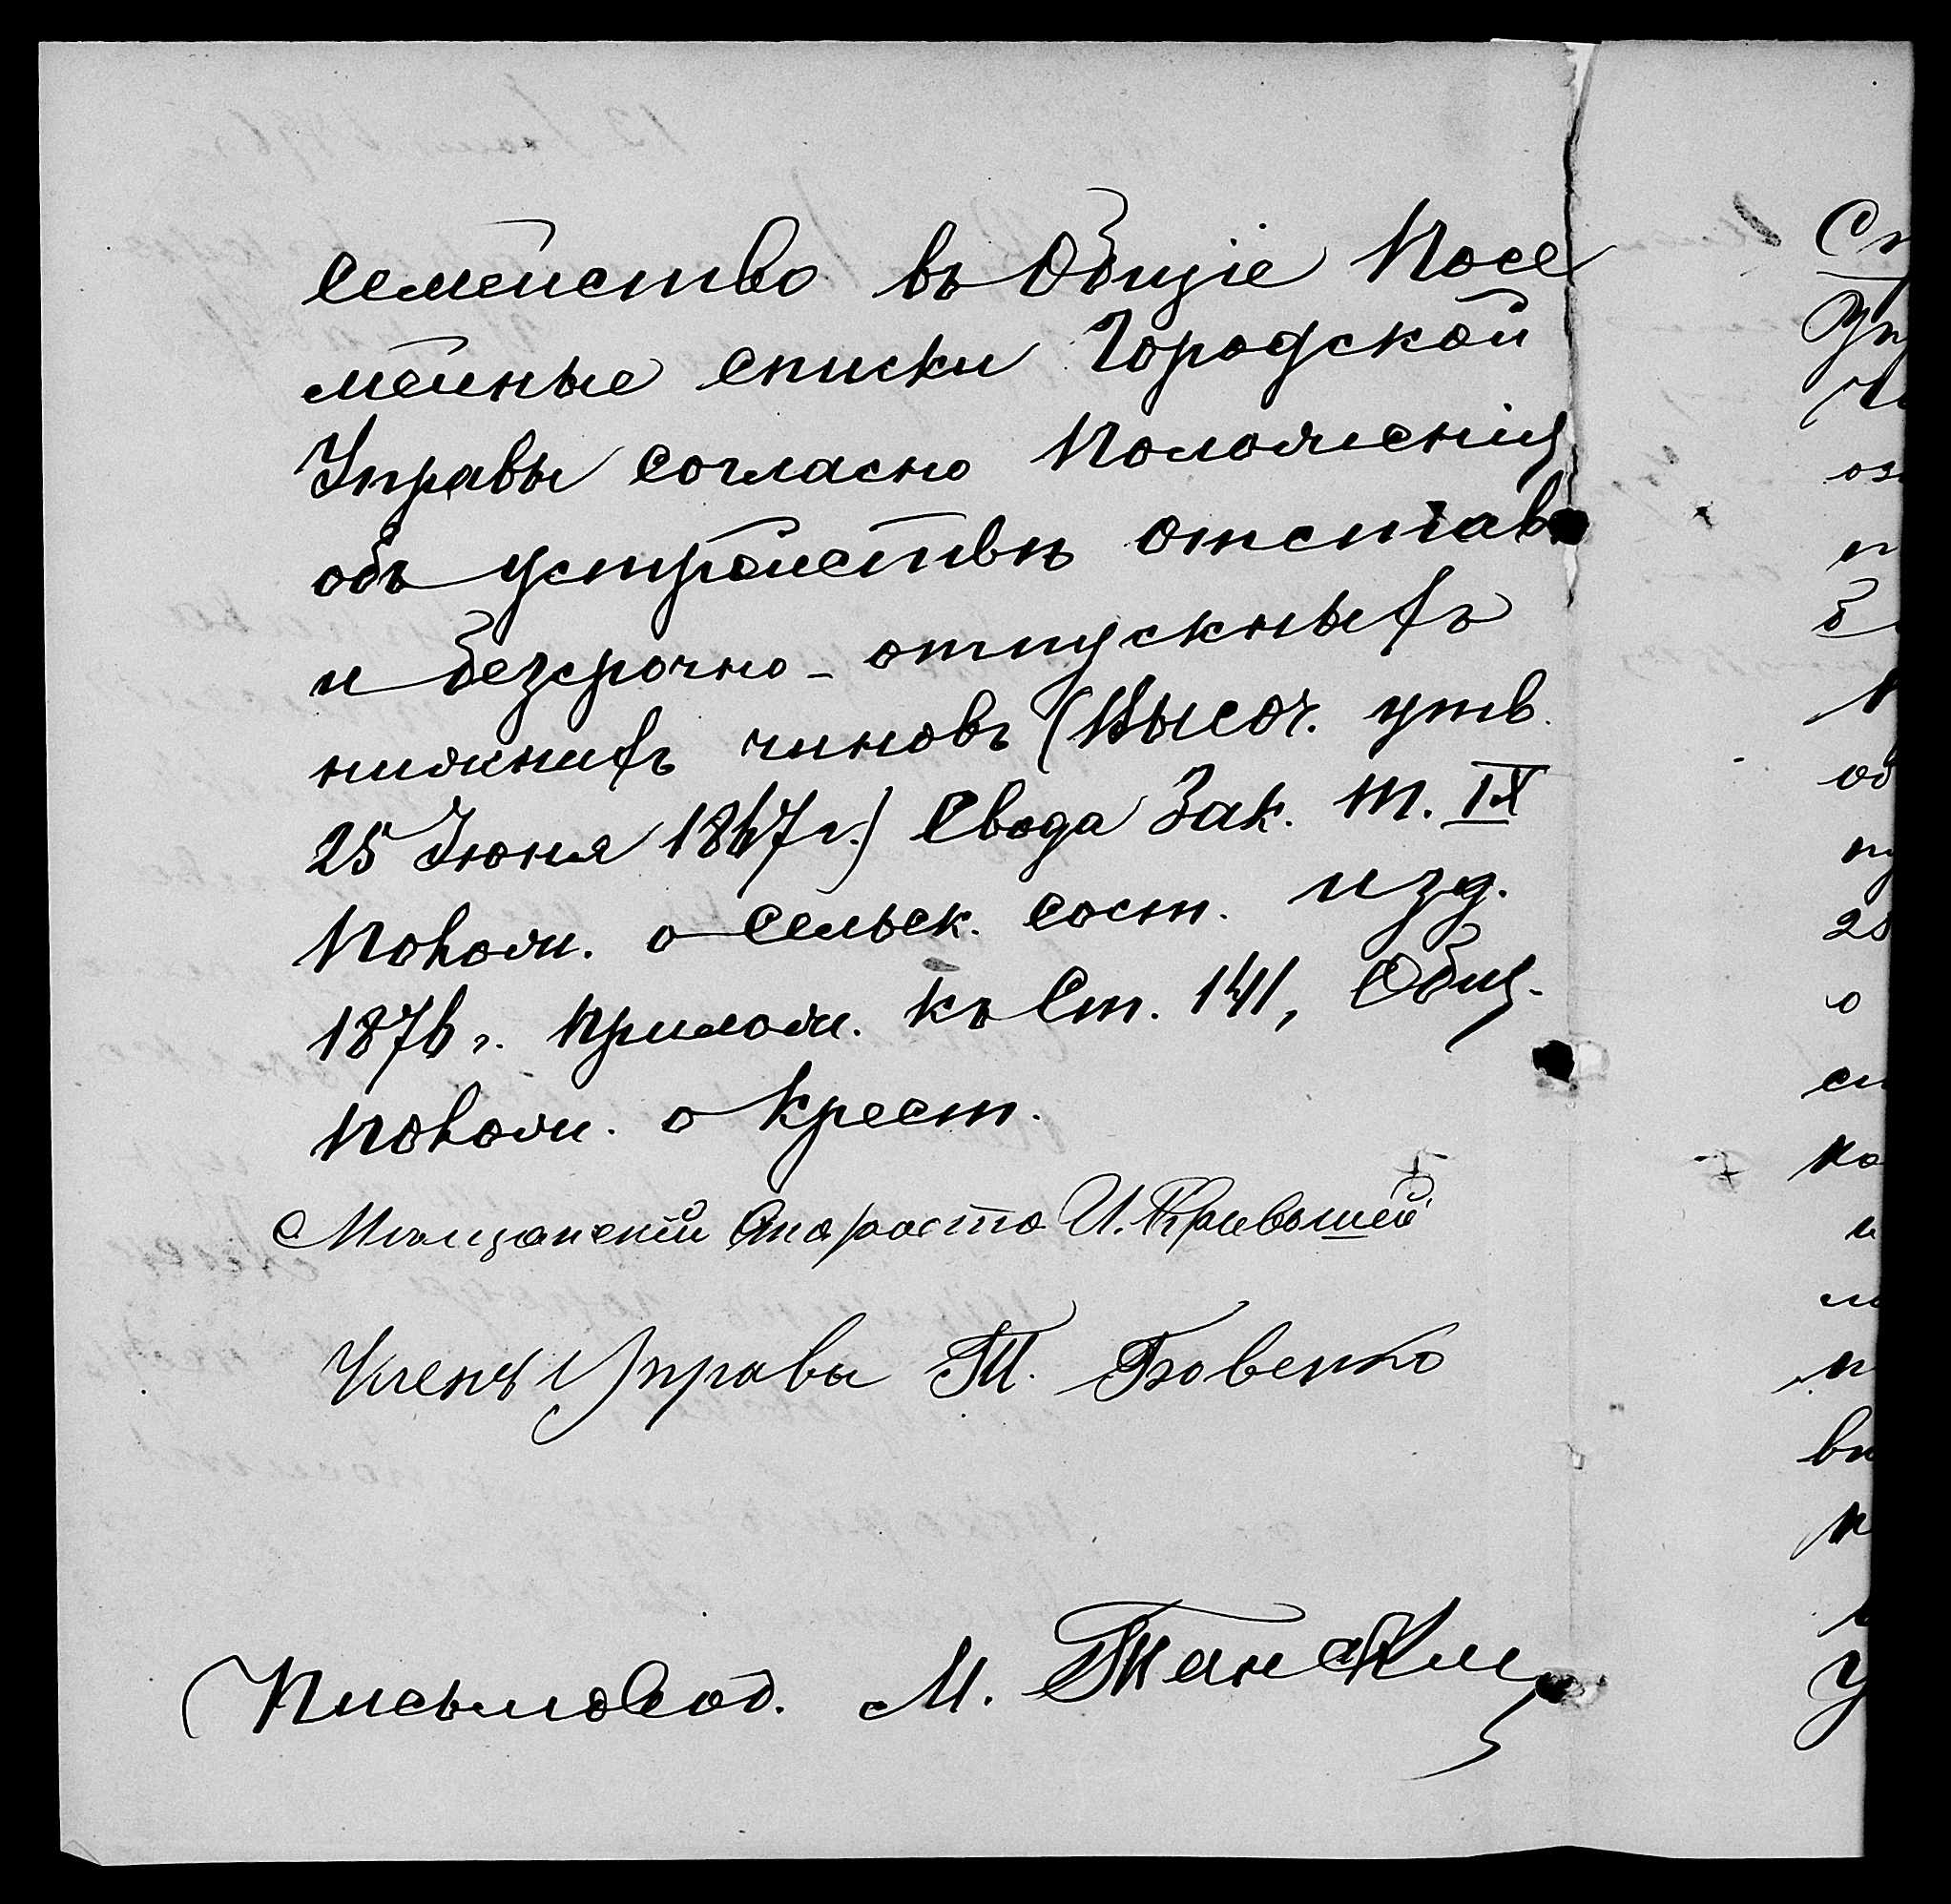 семейство въ Общіе Посе
мейные списки Городской
Управы согласно Положенія
объ устройствѣ отстав
и безсрочно-отпускныхъ
нижнихъ чиновъ (Высоч. утв.
25 Іюня 1867 г.) Свода Зак. т. IX
Полож. о сельск. сост. изд.
1876 г. прилож. къ ст. 141, Общ.
Полож. о крест.
Мѣщанскій Староста И.
Членъ Управы
Письмовод. М.